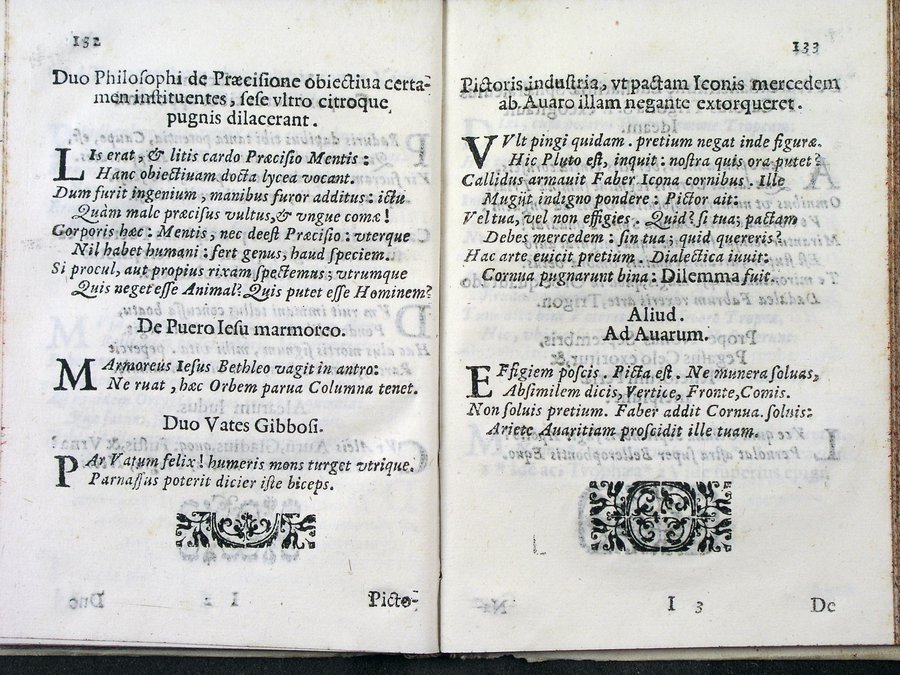 132
Duo Philoſophi de Præciſione obiectiua certa-
men inſtituentes, ſeſe vltro citroque
pugnis dilacerant.
LIs erat, & litis cardo Præciſio Mentis:
Hanc obiectiuam docta lycea vocant.
Dum furit ingenium, manibus furor additus: ictu
Quàm malè præciſus vultus, & vngue comæ!
Corporis hæc: Mentis, nec deeſt Præciſio: vterque
Nil habet humani: fert genus, haud ſpeciem.
Si procul, aut propius rixam ſpectemus; vtrumque
Quis neget eſſe Animal? Quis putet eſſe Hominem?
De Puero Ieſu marmoreo.
MArmoreus Iesus Bethleo vagit in antro:
Ne ruat, hæc Orbem parua Columna tenet.
Duo Vates Gibboſi.
PAr Vatum felix! humeris mons turget vtrique.
Parnaſſus poterit dicier iſte biceps.
I 2
Picto-
133
Pictoris induſtria, vt pactam Iconis mercedem
ab Auaro illam negante extorqueret.
VVlt pingi quidam. pretium negat inde figuræ.
Hic Pluto eſt, inquit: noſtra quis ora putet?
Callidus armauit Faber Icona cornibus. Ille
Mugijt indigno pondere: Pictor ait:
Vel tua, vel non effigies. Quid? ſi tua; pactam
Debes mercedem: ſin tua; quid quereris?
Hac arte euicit pretium. Dialectica iuuit:
Cornua pugnarunt bina: Dilemma fuit.
Aliud.
Ad Auarum.
EFfigiem poſcis. Picta eſt. Ne munera ſoluas,
Abſimilem dicis, Vertice, Fronte, Comis.
Non ſoluis pretium. Faber addit Cornua. ſoluis:
Ariete Auaritiam proſcidit ille tuam.
I 3
De